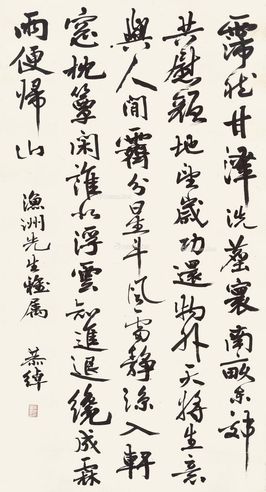 霈然甘澤洗塵寰南畝東郊
共慰顏地望歲功還物外天將生意
與人間霽分星斗風雷靜涼入軒
窓枕簟閑誰似浮雲知進退纔成霖
雨便歸山
漁洲先生雅属 恭綽